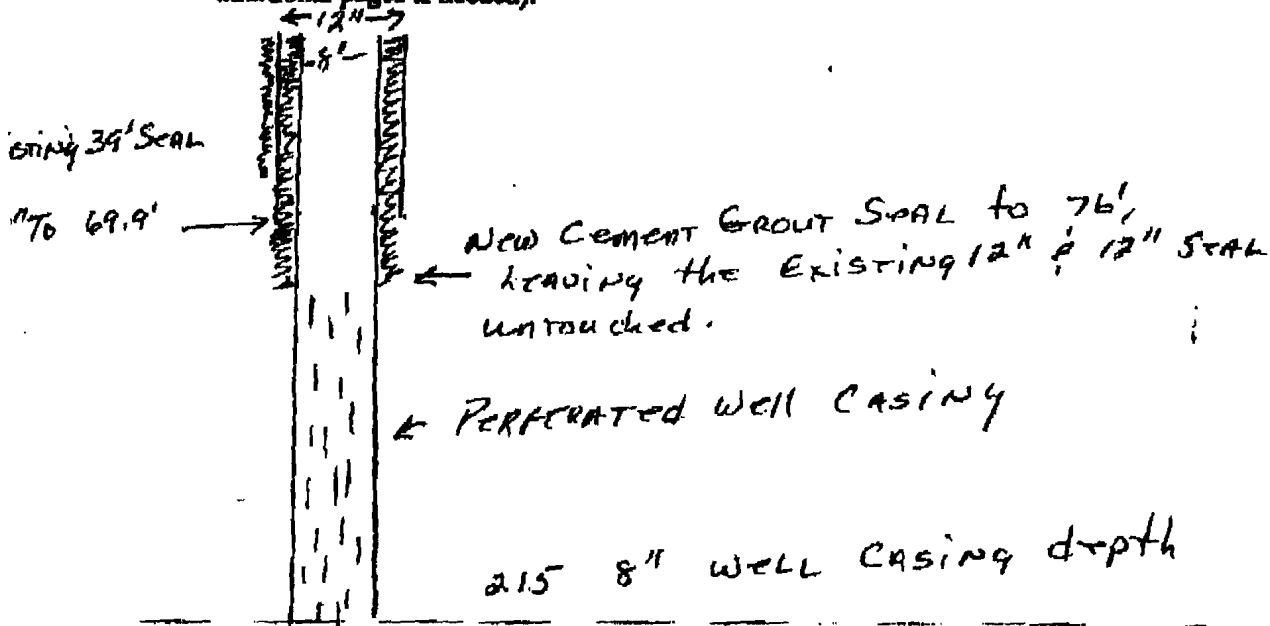 12"
8'
isting 39' Seal
"To 69.9'
New Cement Grout Seal to 76',
Leaving the Existing 12" & 12" Seal
untouched.
Perferated Well Casing
215 8" Well Casing depth